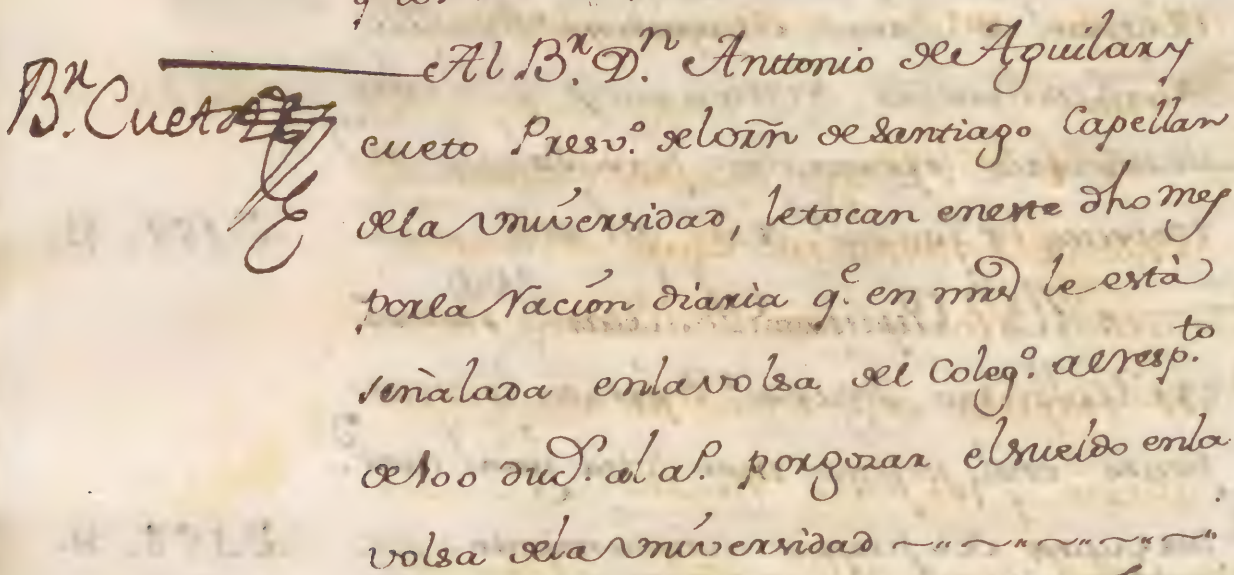 Al B.r D.n Anttonio de Aguilar y
B.r Cueto
cueto Presv.o del orn̄ de Santiago Capellan
de la Vniversidad, le tocan en este d̃ho mes
por la Racion diaria q.e en mrs̃ le està
señalada en la volsa del Coleg.o al resp.to
de 100 duc.s al a.o por gozar el sueldo en la
volsa de la Vniversidad ~"~"~"~"~"